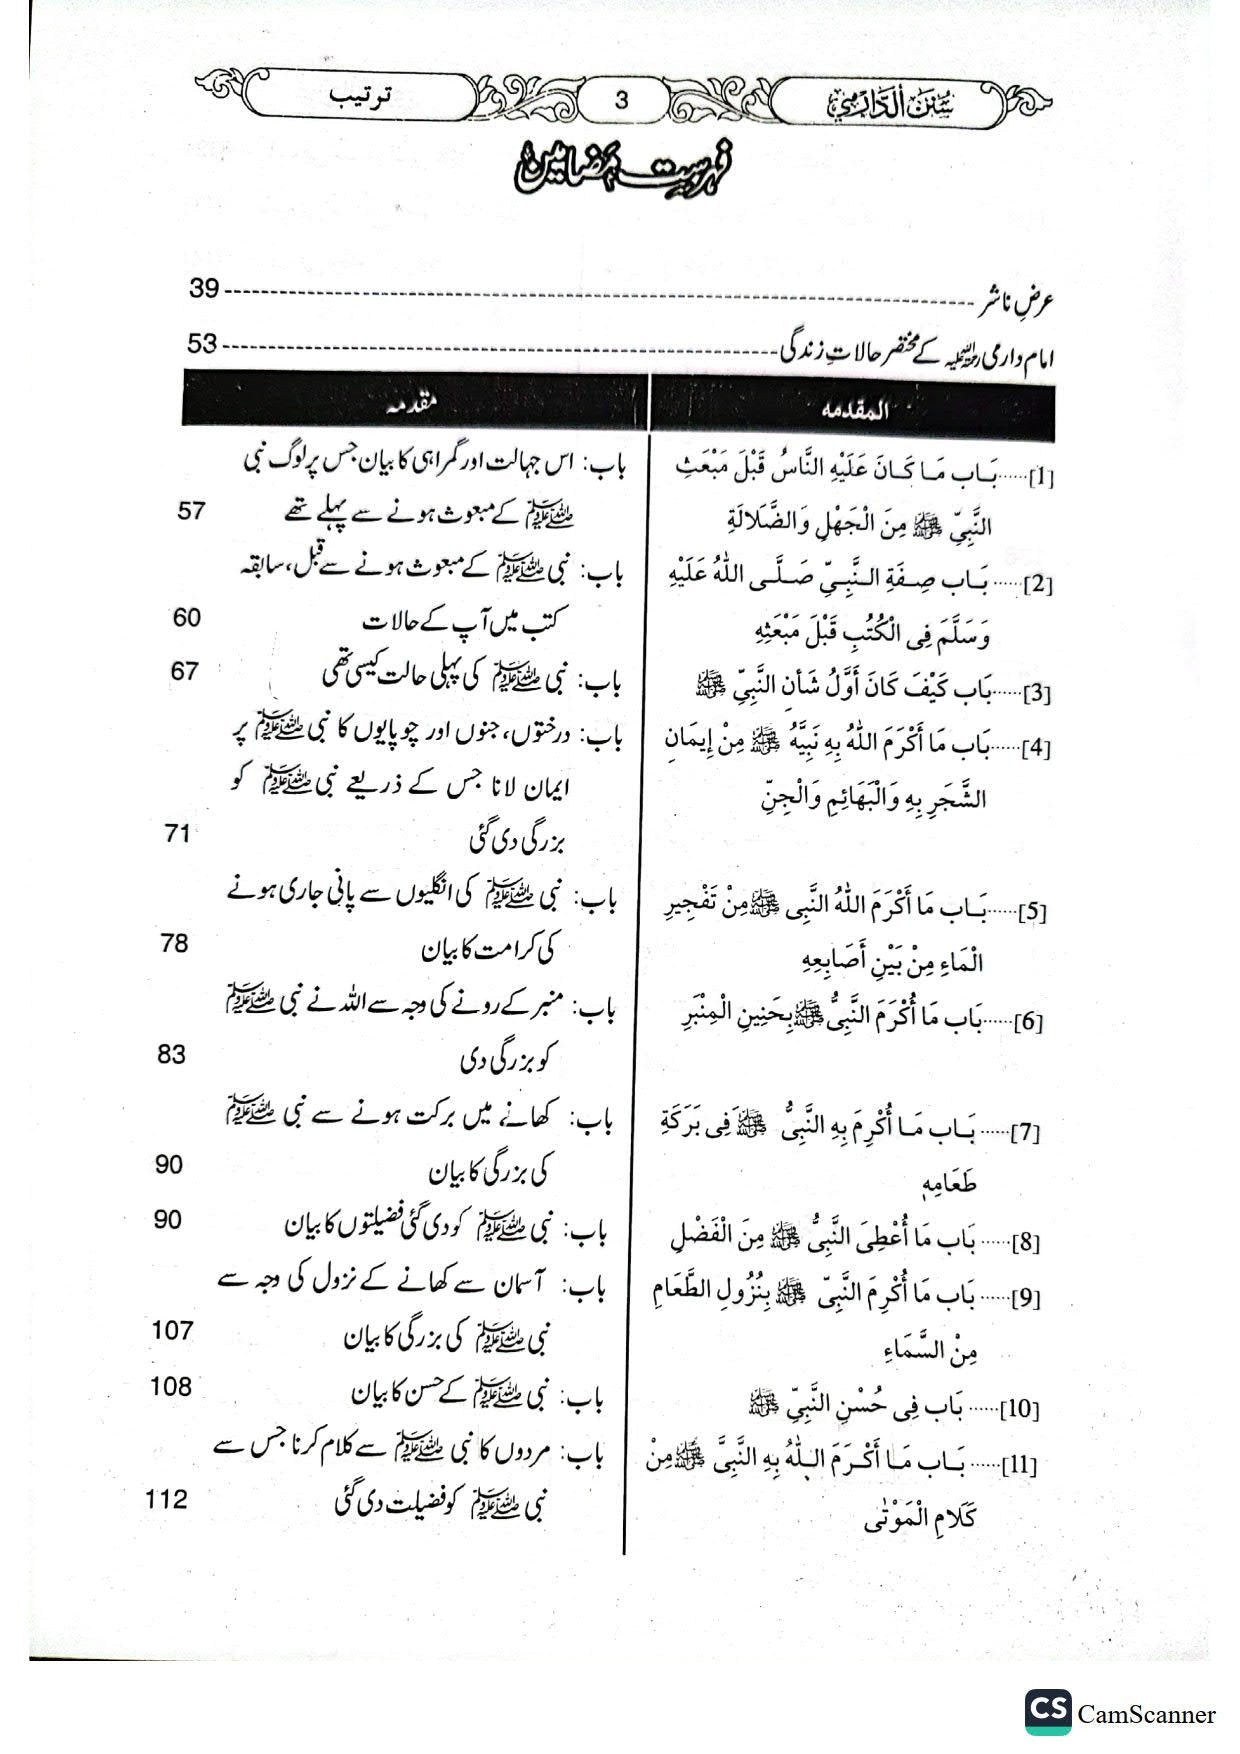 سُنَنُ الدَّارِمِيّ 3 ترتیب
فہرست مضامین
عرضِ ناشر 39
امام دارمی رحمۃ اللہ علیہ کے مختصر حالاتِ زندگی 53
المقدمه مقدمہ
[1]......بَاب مَا كَانَ عَلَيْهِ النَّاسُ قَبْلَ مَبْعَثِ باب: اس جہالت اور گمراہی کا بیان جس پر لوگ نبی
النَّبِيِّ ﷺ مِنَ الْجَهْلِ وَالضَّلَالَةِ ﷺ کے مبعوث ہونے سے پہلے تھے 57
[2]......بَاب صِفَةِ النَّبِيِّ صَلَّى اللّٰهُ عَلَيْهِ باب: نبی ﷺ کے مبعوث ہونے سے قبل، سابقہ
وَسَلَّمَ فِى الْكُتُبِ قَبْلَ مَبْعَثِهِ کتب میں آپ کے حالات 60
[3]......بَاب كَيْفَ كَانَ أَوَّلُ شَأْنِ النَّبِيِّ ﷺ باب: نبی ﷺ کی پہلی حالت کیسی تھی 67
[4]......بَاب مَا أَكْرَمَ اللّٰهُ بِهِ نَبِيَّهُ ﷺ مِنْ إِيمَانِ باب: درختوں، جنوں اور چوپایوں کا نبی ﷺ پر
الشَّجَرِ بِهِ وَالْبَهَائِمِ وَالْجِنِّ ایمان لانا جس کے ذریعے نبی ﷺ کو
بزرگی دی گئی 71
[5]......بَاب مَا أَكْرَمَ اللّٰهُ النَّبِى ﷺ مِنْ تَفْجِيرِ باب: نبی ﷺ کی انگلیوں سے پانی جاری ہونے
الْمَاءِ مِنْ بَيْنِ أَصَابِعِهِ کی کرامت کا بیان 78
[6]......بَاب مَا أُكْرَمَ النَّبِىُّ ﷺ بِحَنِينِ الْمِنْبَرِ باب: منبر کے رونے کی وجہ سے اللہ نے نبی ﷺ
کو بزرگی دی 83
[7]......بَاب مَا أُكْرِمَ بِهِ النَّبِىُّ ﷺ فِى بَرَكَةِ باب: کھانے میں برکت ہونے سے نبی ﷺ
طَعَامِهٖ کی بزرگی کا بیان 90
[8]......بَاب مَا أُعْطِىَ النَّبِىُّ ﷺ مِنَ الْفَضْلِ باب: نبی ﷺ کو دی گئی فضیلتوں کا بیان 90
[9]......بَاب مَا أُكْرِمَ النَّبِىّ ﷺ بِنُزُولِ الطَّعَامِ باب: آسمان سے کھانے کے نزول کی وجہ سے
مِنْ السَّمَاءِ نبی ﷺ کی بزرگی کا بیان 107
[10]......بَاب فِى حُسْنِ النَّبِىِّ ﷺ باب: نبی ﷺ کے حسن کا بیان 108
[11]......بَاب مَا أَكْرَمَ اللّٰهُ بِهِ النَّبِىَّ ﷺ مِنْ باب: مردوں کا نبی ﷺ سے کلام کرنا جس سے
كَلَامِ الْمَوْتٰى نبی ﷺ کو فضیلت دی گئی 112
CS CamScanner